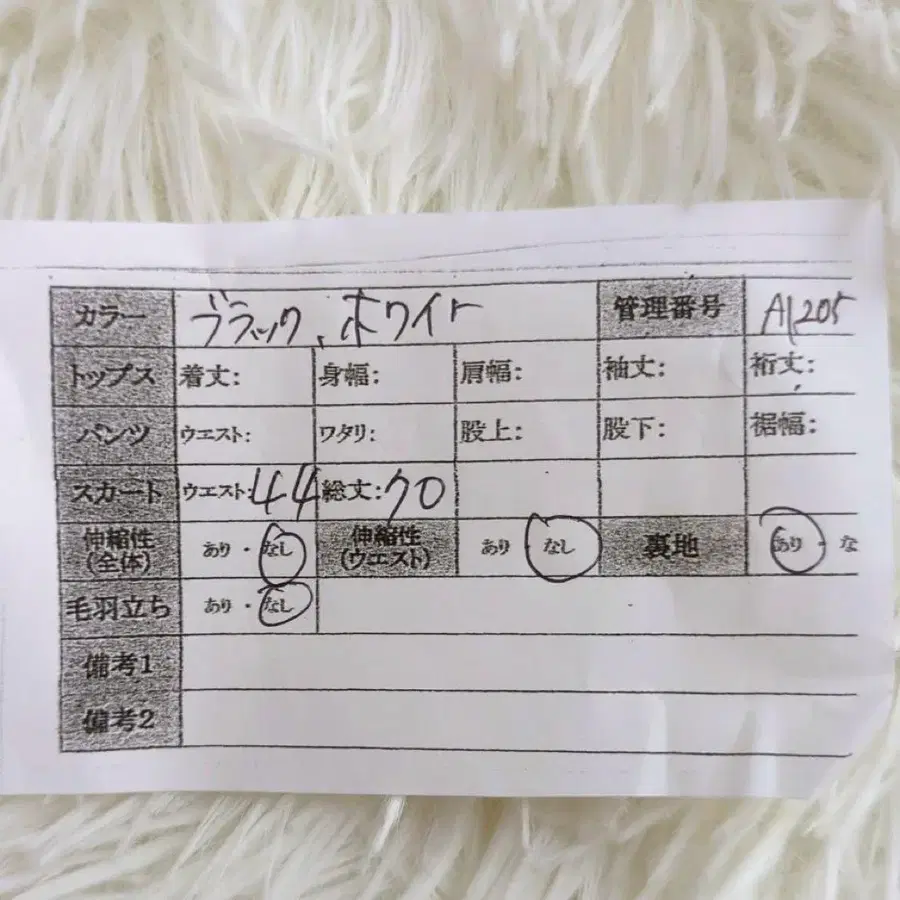 カラー ブラック、ホワイト 管理番号 A1205
トップス 着丈: 身幅: 肩幅: 袖丈: 裄丈:
パンツ ウエスト: ワタリ: 股上: 股下: 裾幅:
スカート ウエスト:44 総丈:70
伸縮性(全体) あり・なし 伸縮性(ウエスト) あり・なし 裏地 あり・な
毛羽立ち あり・なし
備考1
備考2